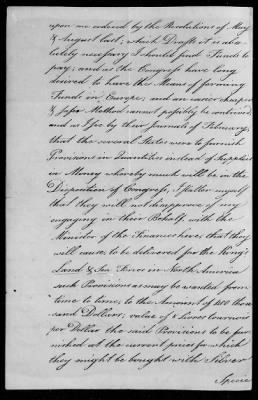 upon me ordered by the Resolutions of May
& August last; which Drafts it is abso-
lutely necessary I should find Funds to
pay; and as the Congress have long
desired to have the Means of forming
Funds in Europe; and an easier cheaper
& safer Method cannot possibly be contrived;
and as I see by their Journals of February,
that the several States were to furnish
Provisions in Quantities instead of Supplies
in Money whereby much will be in the
Disposition of Congress, I flatter myself
that they will not disapprove of my
engaging in their Behalf with the
Minister of the Finances here, that they
will cause to be delivered for the King's
Land & Sea Forces in North America
such Provisions as may be wanted from
time to time, to the Amount of 400 thou
sand Dollars, value of 5 livres tournois
per Dollar the said Provisions to be fur
nished at the current prices for which
they might be bought with Silver
Specie